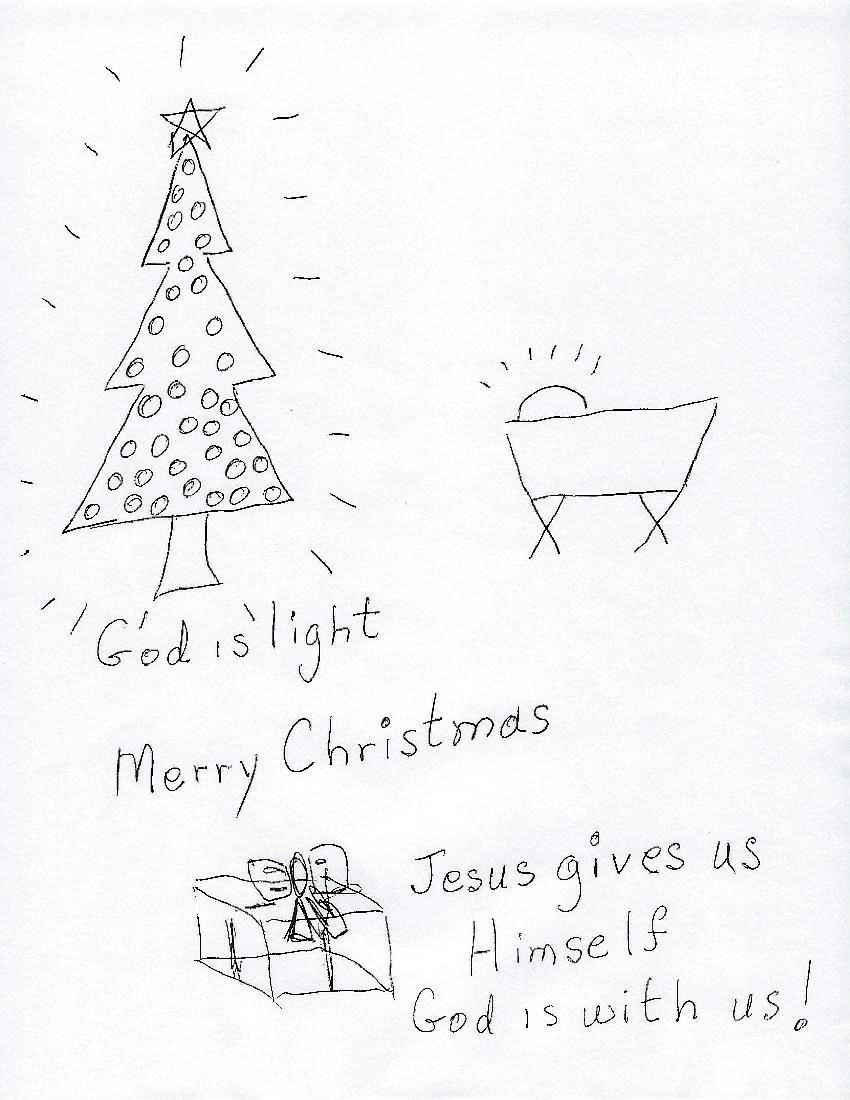 God is light
Merry Christmas
Jesus gives us
Himself
God is with us!